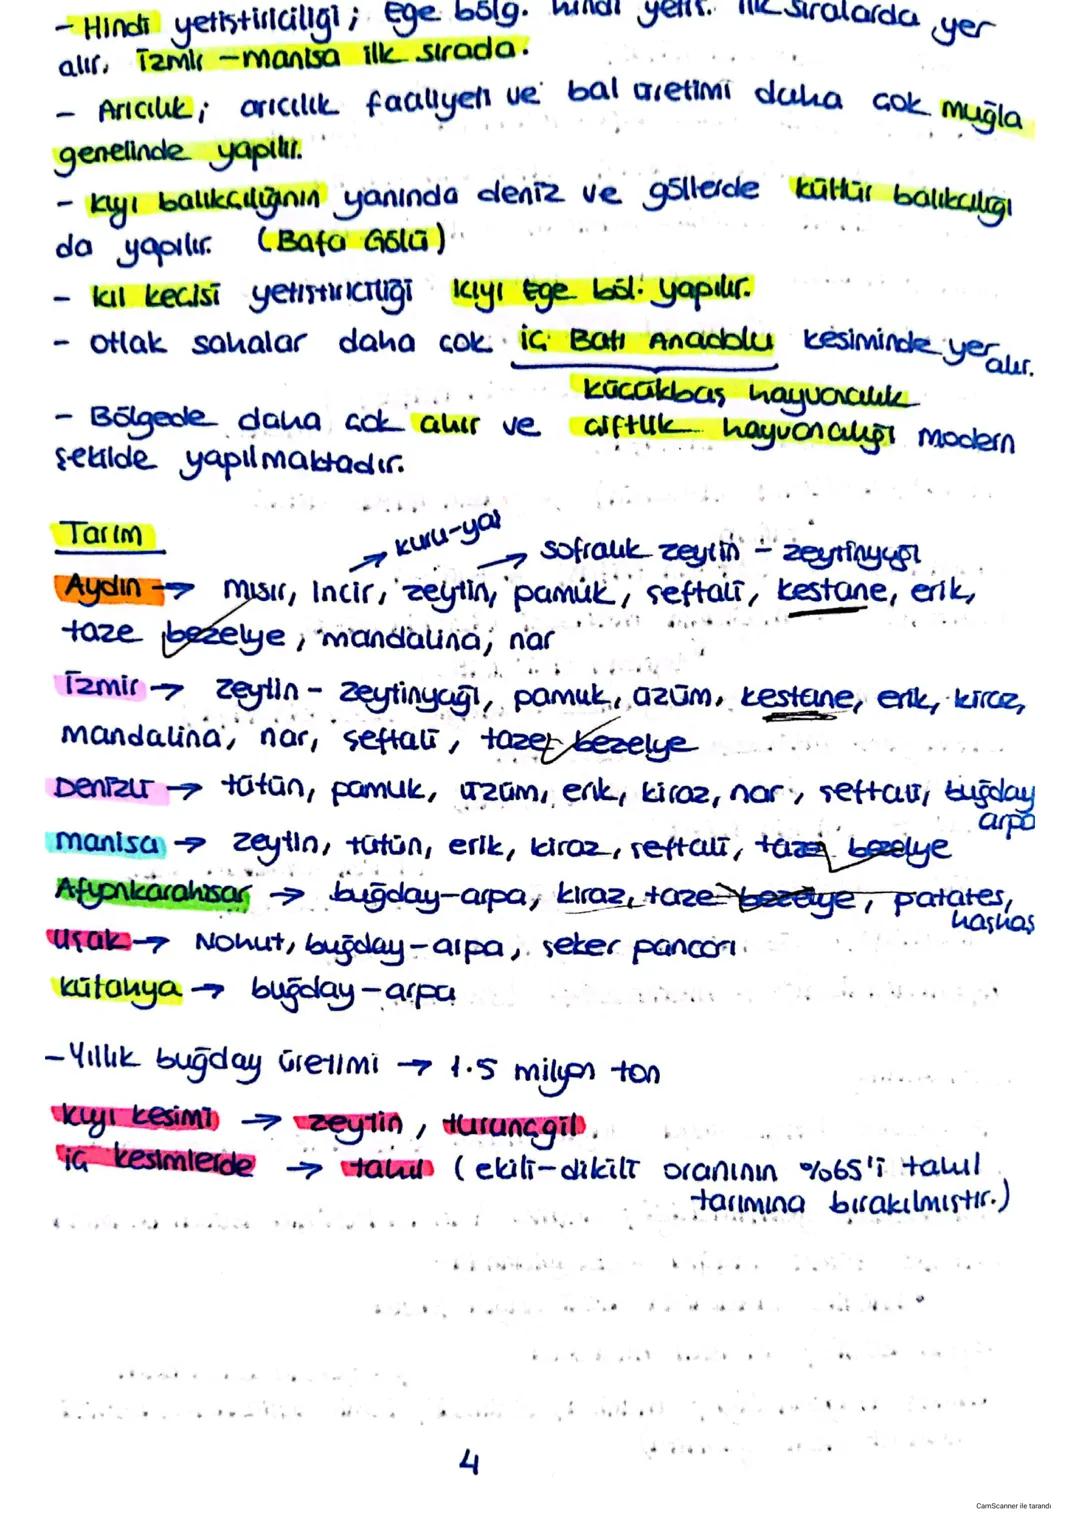 - Hindi yetiştiriciliği; Ege bölg. hindi yetiş. ilk sıralarda yer
alır. İzmir - manisa ilk sırada.
- Arıcılık; arıcılık faaliyeti ve bal üretimi daha çok muğla
genelinde yapılır.
- kıyı balıkçılığının yanında deniz ve göllerde kültür balıkçılığı
da yapılır. (Bafa Gölü)
- kıl keçisi yetiştiriciliği kıyı Ege böl. yapılır.
- otlak sahalar daha çok iç Batı Anadolu kesiminde yer alır.
küçükbaş hayvancılık
- Bölgede daha çok ahır ve çiftlik hayvancılığı modern
şekilde yapılmaktadır.
Tarım
kuru-yaş
sofralık zeytin - zeytinyağı
Aydın → mısır, incir, zeytin, pamuk, şeftali, kestane, erik,
taze bezelye, mandalina, nar
İzmir → zeytin - zeytinyağı, pamuk, üzüm, kestane, erik, kiraz,
mandalina, nar, şeftali, taze bezelye
Denizli → tütün, pamuk, üzüm, erik, kiraz, nar, şeftali, buğday
arpa
manisa → zeytin, tütün, erik, kiraz, şeftali, taze bezelye
Afyonkarahisar → buğday-arpa, kiraz, taze bezelye, patates,
haşhaş
uşak → Nohut, buğday-arpa, şeker pancarı
kütahya → buğday-arpa
- Yıllık buğday üretimi → 1.5 milyon ton
kıyı kesimi → zeytin, turunçgil
iç kesimlerde → tahıl (ekili-dikili oranının %65'i tahıl
tarımına bırakılmıştır.)
4
CamScanner ile tarandı